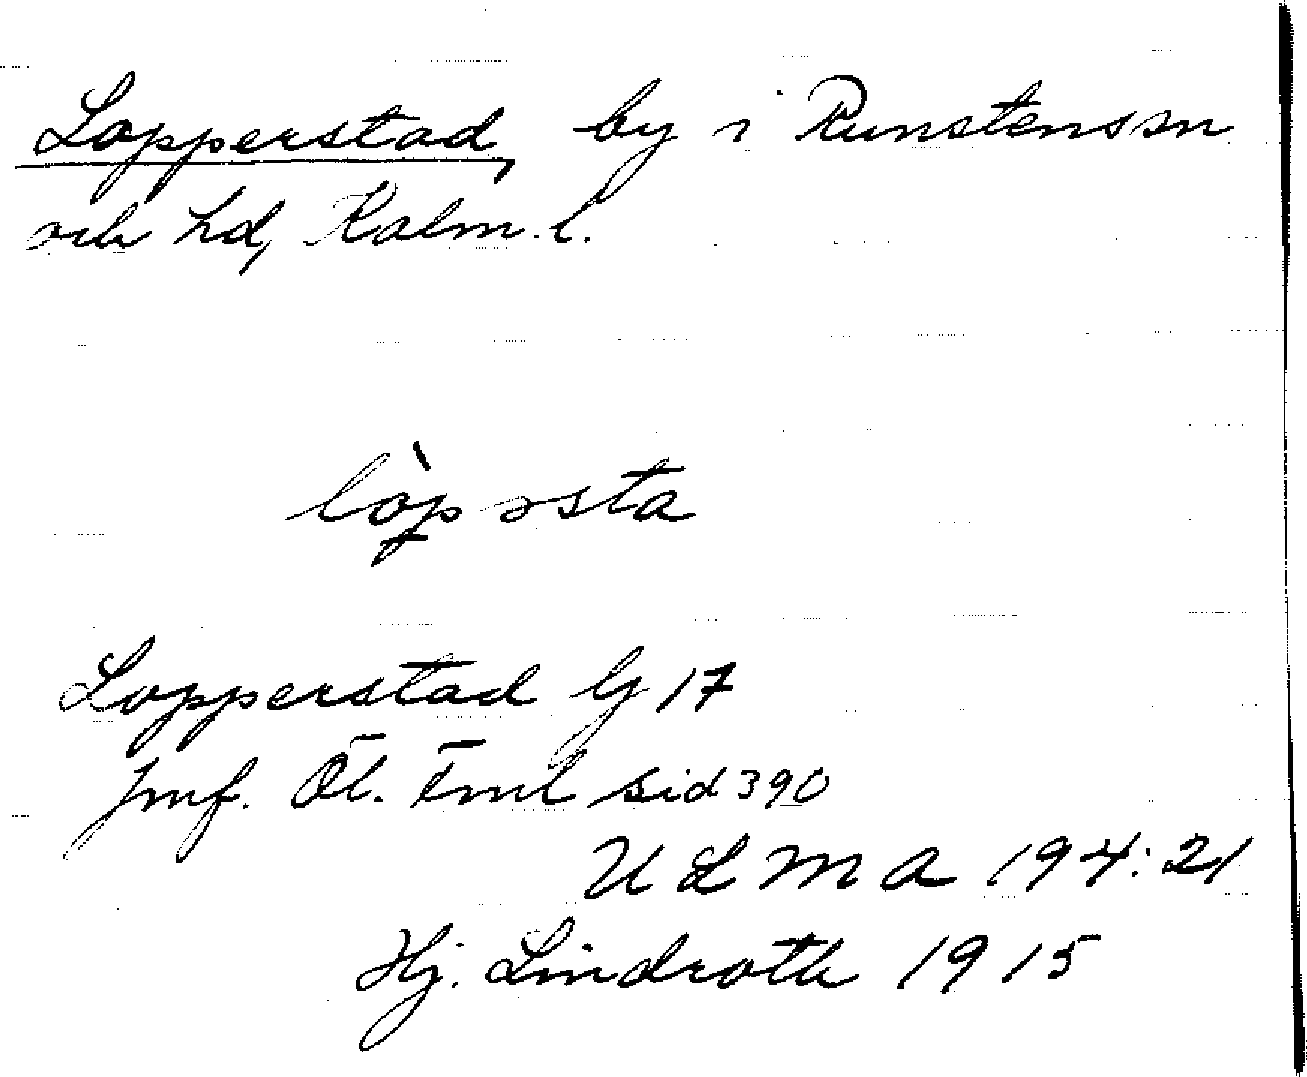 Lopperstad, by i Runstens sn
och hd, Kalm. l.
lòpəsta
Lopperstad G 17
Jmf. Öl. Fml sid 390
U L M A 194:21
Hj. Lindroth 1915